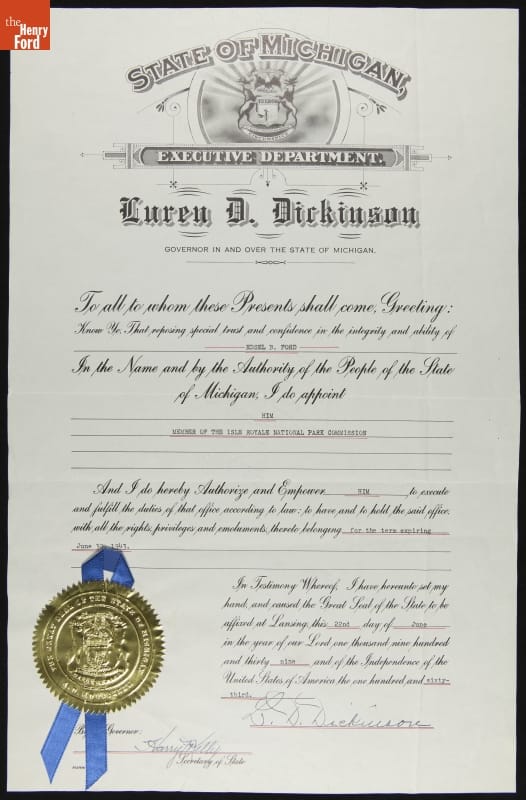 the
Henry
Ford
STATE OF MICHIGAN,
TUEBOR
EXECUTIVE DEPARTMENT.
Luren D. Dickinson
GOVERNOR IN AND OVER THE STATE OF MICHIGAN.
To all to whom these Presents shall come, Greeting:
Know Ye, That reposing special trust and confidence in the integrity and ability of
EDSEL B. FORD
In the Name and by the Authority of the People of the State
of Michigan, I do appoint
HIM
MEMBER OF THE ISLE ROYALE NATIONAL PARK COMMISSION
And I do hereby Authorize and Empower HIM, to execute
and fulfill the duties of that office, according to law; to have and to hold the said office,
with all the rights, privileges and emoluments, thereto belonging for the term expiring
June 1941.
In Testimony Whereof, I have hereunto set my
hand, and caused the Great Seal of the State to be
affixed at Lansing, this 22nd day of June
in the year of our Lord one thousand nine hundred
and thirty nine and of the Independence of the
United States of America the one hundred and sixty-
third.
L. D. Dickinson
THE GREAT SEAL OF THE STATE OF MICHIGAN
By the Governor:
Harry F. Kelly
Secretary of State